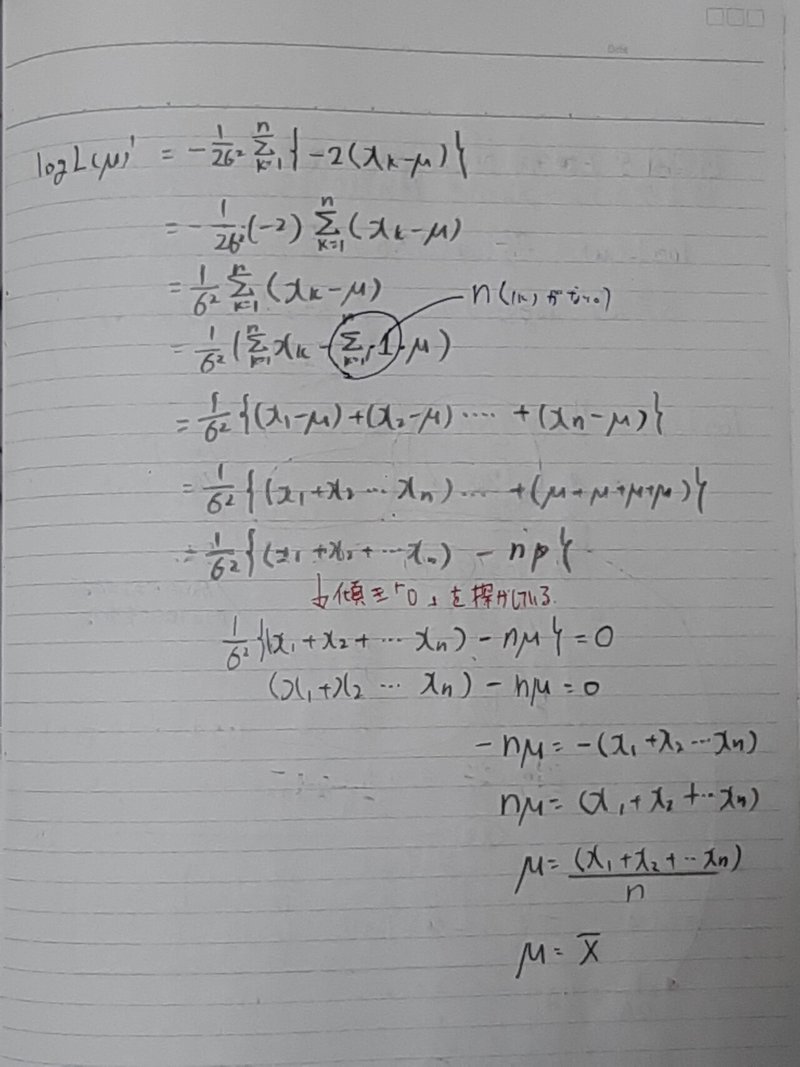 Date
log L(μ)' = -1/2σ² Σ_{k=1}^{n} { -2(x_k-μ) }
= -1/2σ² (-2) Σ_{k=1}^{n} (x_k-μ)
= 1/σ² Σ_{k=1}^{n} (x_k-μ)
n(
= 1/σ² (Σ_{k=1}^{n} x_k - Σ_{k=1}^{n} 1·μ)
= 1/σ² {(x₁-μ)+(x₂-μ) ···· +(x_n-μ)}
= 1/σ² {(x₁+x₂ ··· x_n) ···· +(μ+μ+μ+μ)}
= 1/σ² {(x₁+x₂+ ··· x_n) - nμ}
↓傾き「0」を探している
1/σ² {(x₁+x₂+ ··· x_n) - nμ} = 0
(x₁+x₂ ··· x_n) - nμ = 0
-nμ = -(x₁+x₂ ··· x_n)
nμ = (x₁+x₂+ ·· x_n)
μ = (x₁+x₂+ ·· x_n)/n
μ = x̄